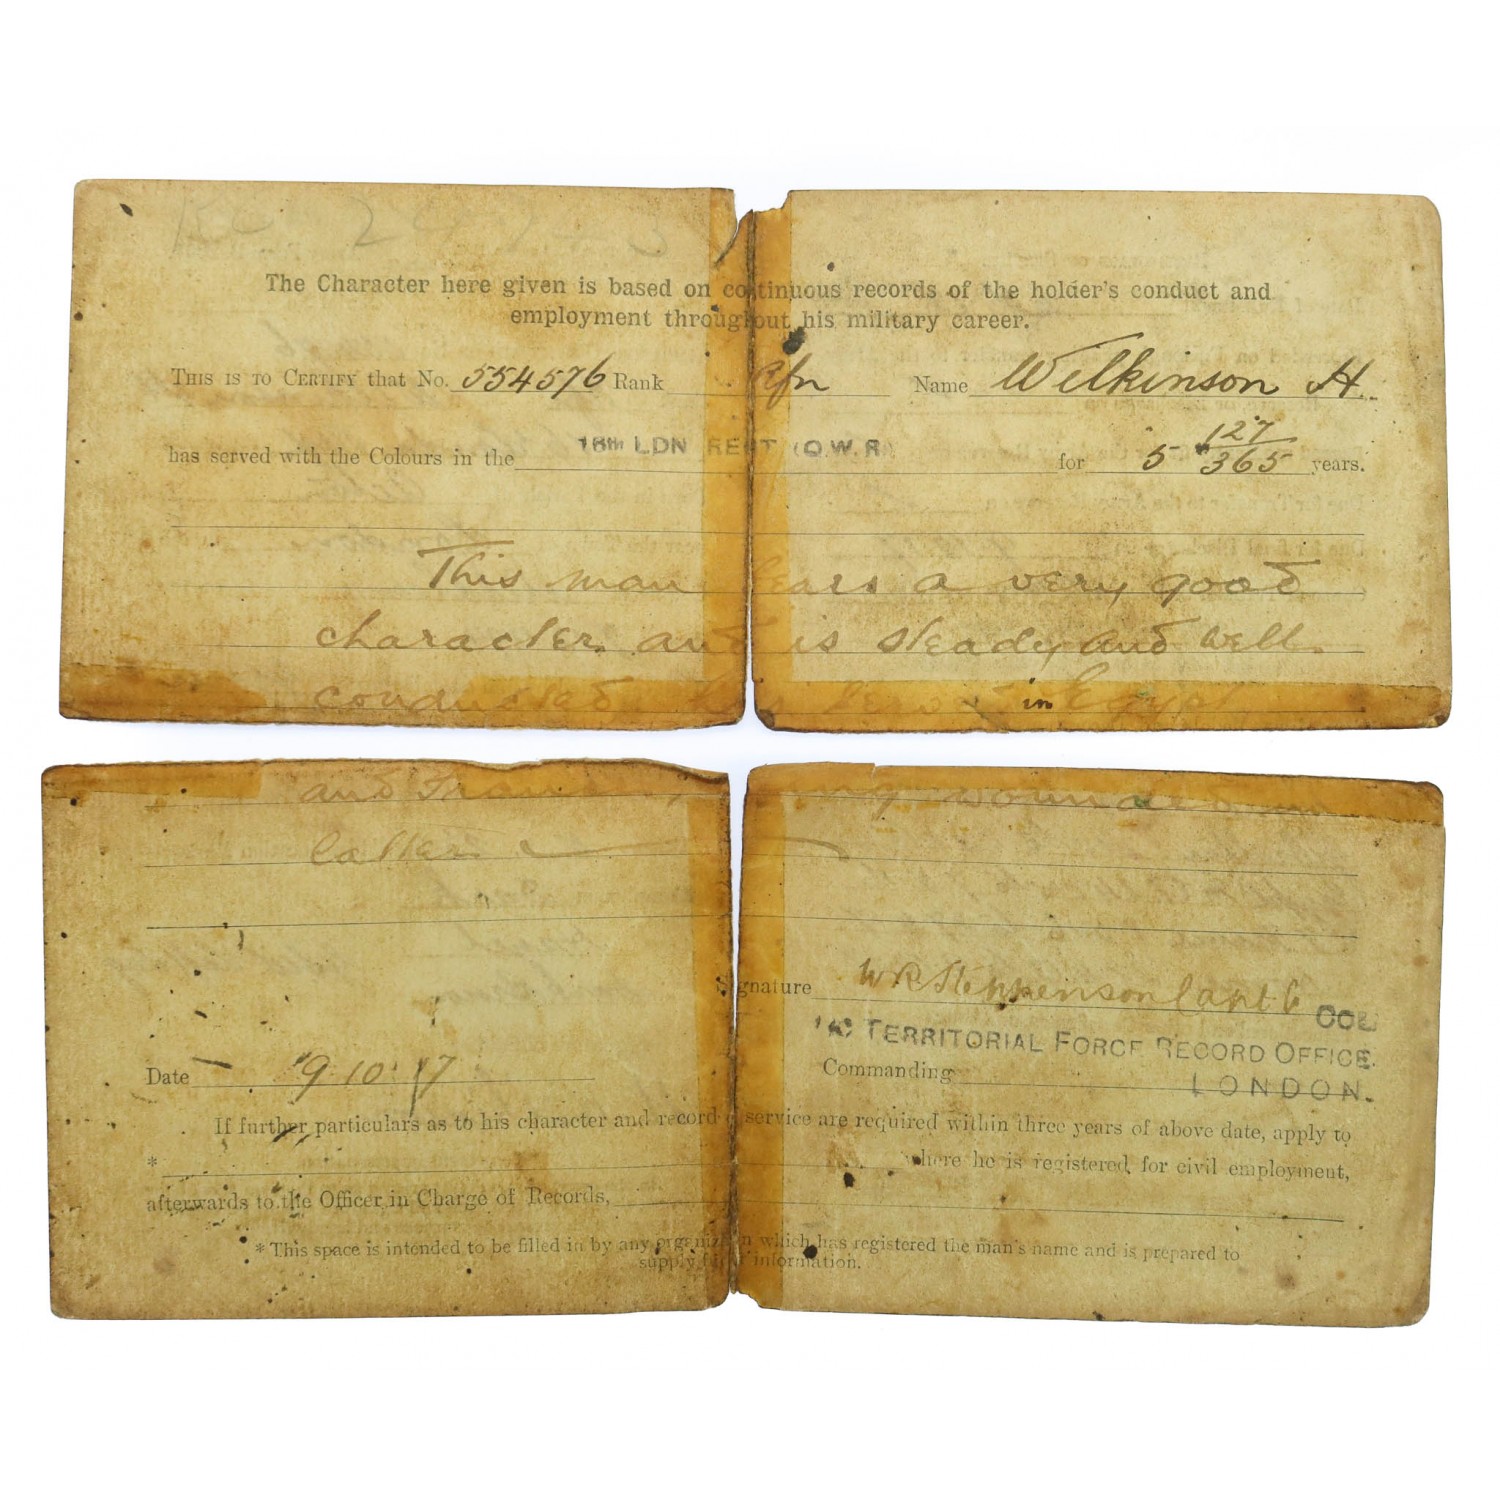 The Character here given is based on continuous records of the holder's conduct and
employment throughout his military career.
THIS IS TO CERTIFY that No. 554576 Rank Rfn Name Wilkinson H.
has served with the Colours in the 16th LDN REGT (Q.W.R) for 5 127/365 years.
This man bears a very good
character and is steady and well
conducted has in Egypt
and France being wounded in
latter
Signature W R Stephenson Capt
TERRITORIAL FORCE RECORD OFFICE.
Date 9.10.17 Commanding LONDON.
If further particulars as to his character and record of service are required within three years of above date, apply to
* where he is registered for civil employment,
afterwards to the Officer in Charge of Records,
* This space is intended to be filled in by any organization which has registered the man's name and is prepared to
supply further information.